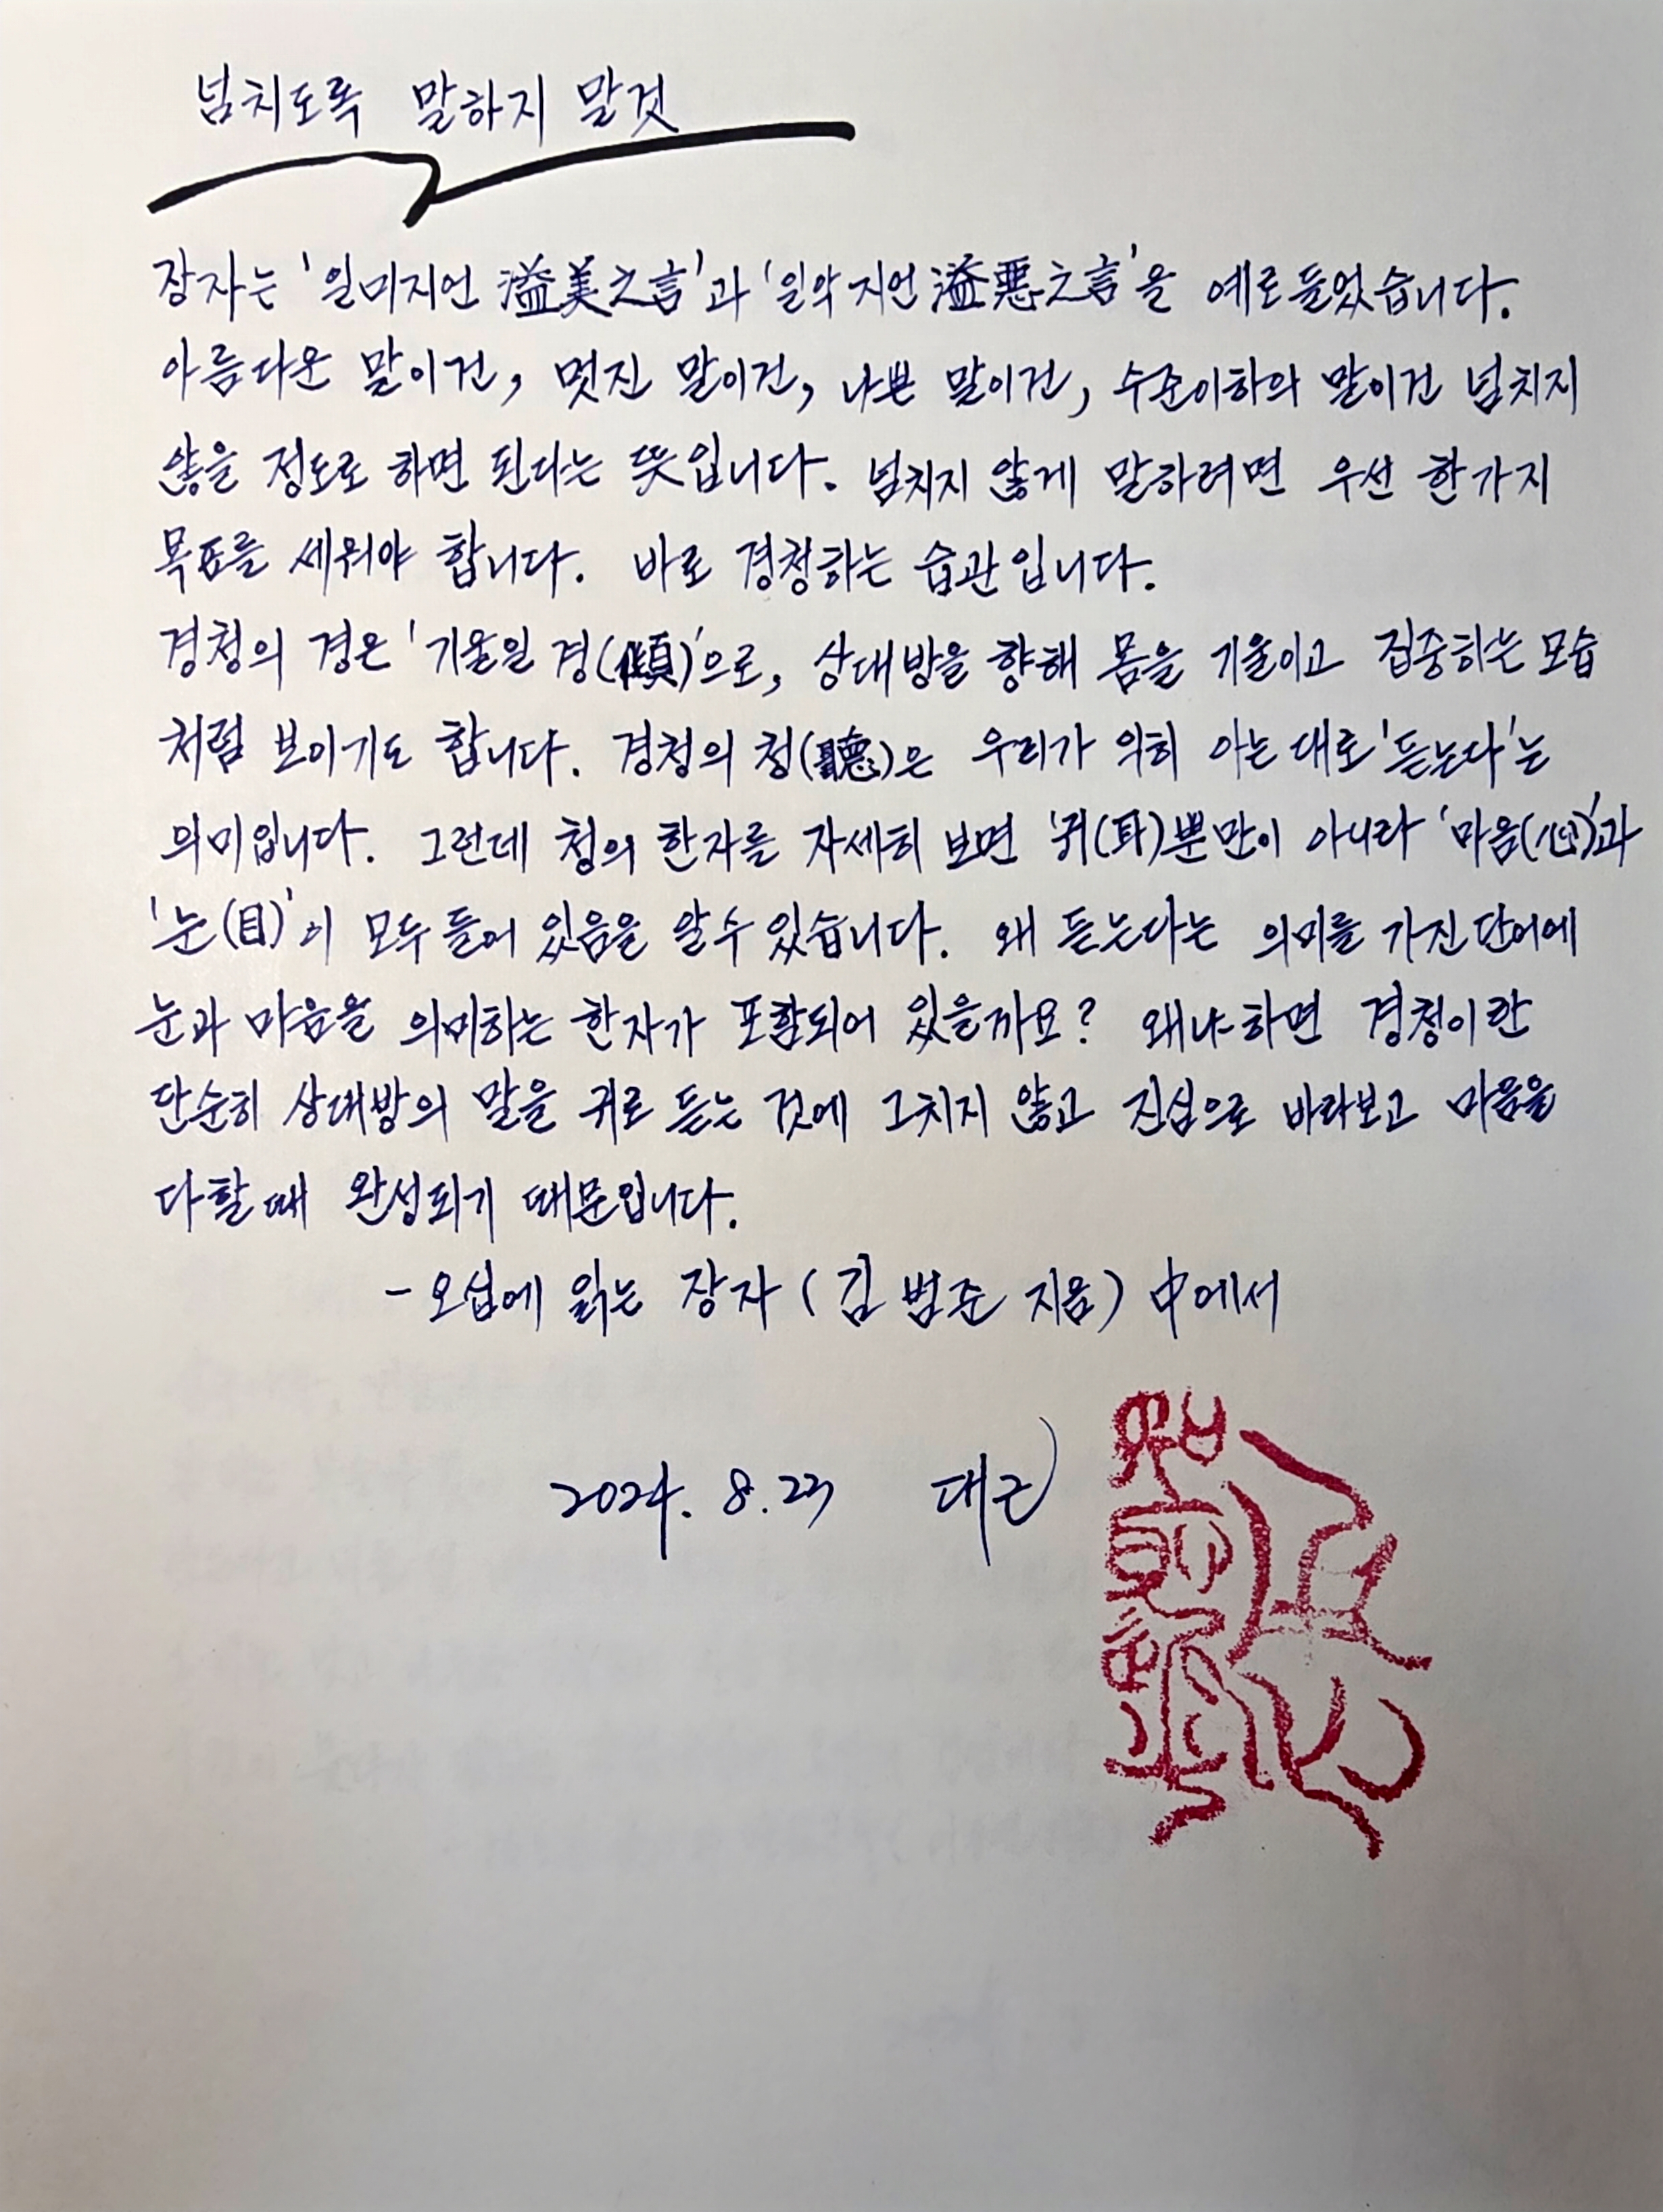 넘치도록 말하지 말것
장자는 '일미지언 溢美之言'과 '일악지언 溢惡之言'을 예로 들었습니다.
아름다운 말이건, 멋진 말이건, 나쁜 말이건, 수준이하의 말이건 넘치지
않을 정도로 하면 된다는 뜻입니다. 넘치지 않게 말하려면 우선 한가지
목표를 세워야 합니다. 바로 경청하는 습관입니다.
경청의 경은 '기울일 경(傾)'으로, 상대방을 향해 몸을 기울이고 집중하는 모습
처럼 보이기도 합니다. 경청의 청(聽)은 우리가 익히 아는 대로 '듣는다'는
의미입니다. 그런데 청의 한자를 자세히 보면 '귀(耳)뿐만이 아니라 '마음(心)'과
'눈(目)'이 모두 들어 있음을 알수 있습니다. 왜 듣는다는 의미를 가진 단어에
눈과 마음을 의미하는 한자가 포함되어 있을까요? 왜냐하면 경청이란
단순히 상대방의 말을 귀로 듣는 것에 그치지 않고 진심으로 바라보고 마음을
다할 때 완성되기 때문입니다.
- 오십에 읽는 장자 (김범준 지음) 中에서
2024. 8. 23 대근